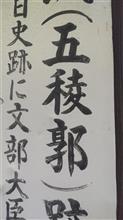 (五稜郭)跡
日史跡に文部大臣